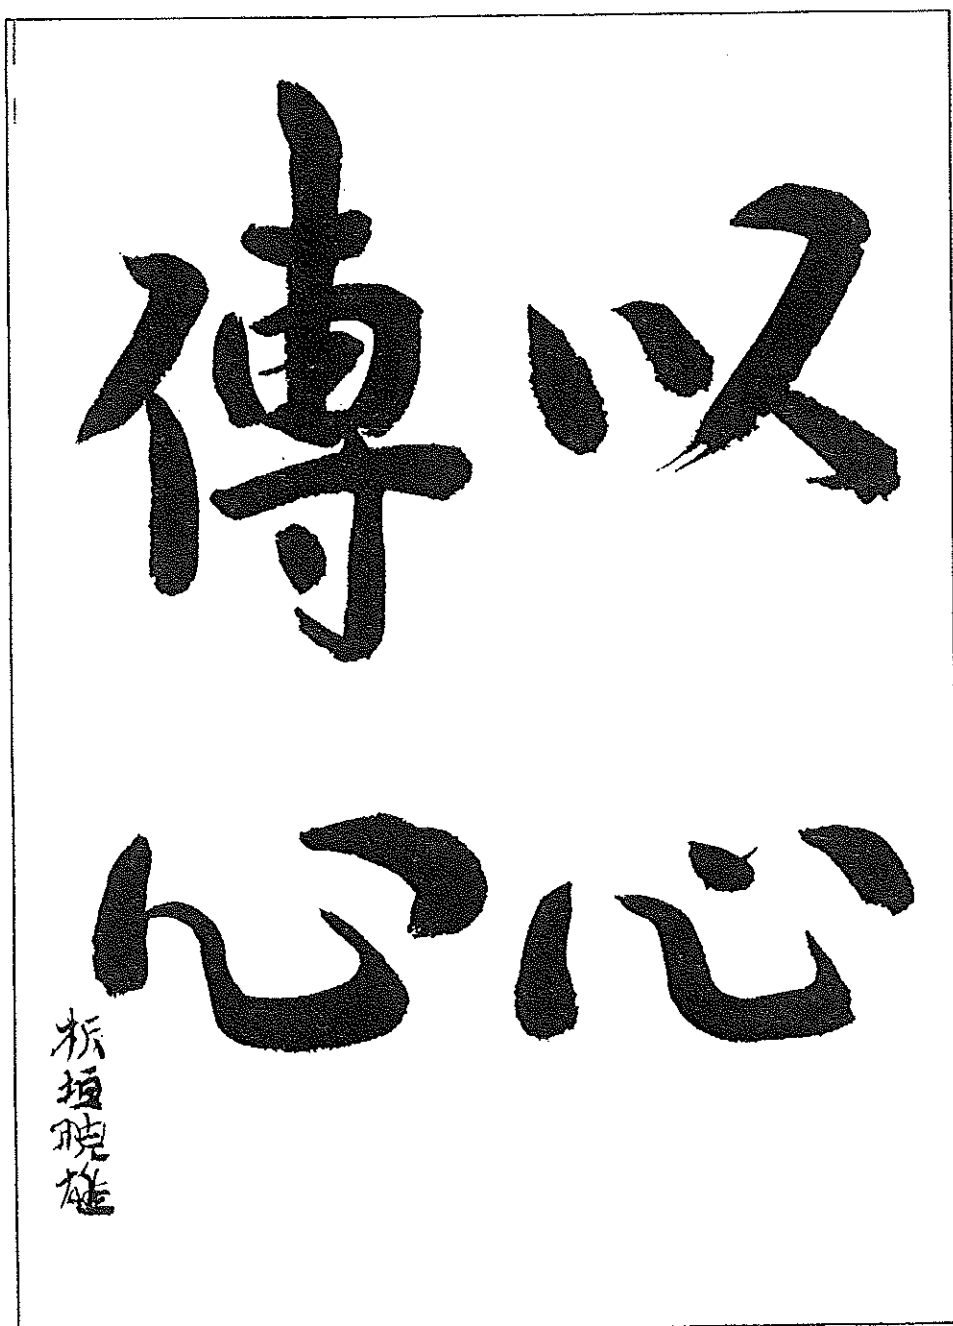 以心
傳心
板垣暁雄